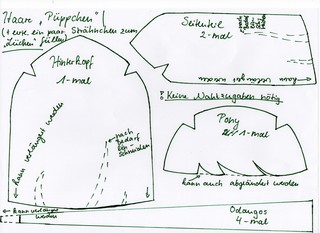 Haare „Püppchen"
(+ evtl. ein paar Strähnchen zum
„Lücken" füllen)
Seitenteil
2-mal
kann verlängert werden
Hinterkopf
1-mal
kann verlängert werden
nach
Bedarf
ein-
schneiden
! Keine Nahtzugaben nötig
Pony
1-mal
kann auch abgeändert werden
kann verlängert
werden
Odangos
4-mal